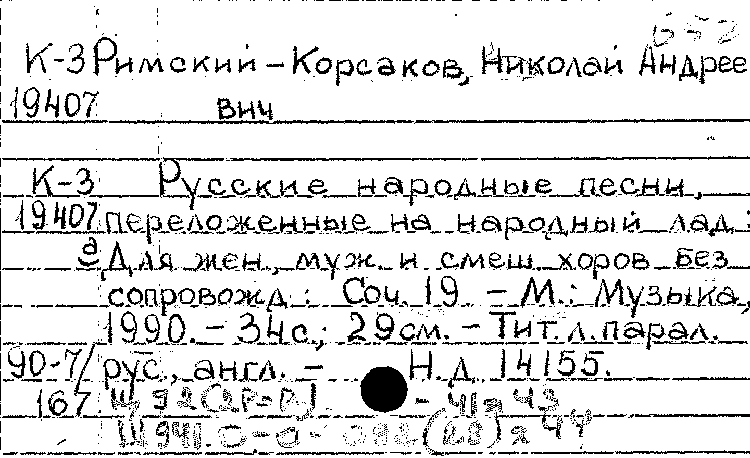 К-3 Римский-Корсаков, Николай Андрее
19407 вич
К-3 Русские народные песни,
19407 переложенные на народный лад:
а Для жен., муж. и смеш хоров без
сопровожд: Соч. 19 - М.: Музыка,
1990. - 34с.; 29см. - Тит. л. парал.
90-7/ рус., англ. - Н.д 14155.
167 Щ92(2Р=Р) - 41я43
Щ941.